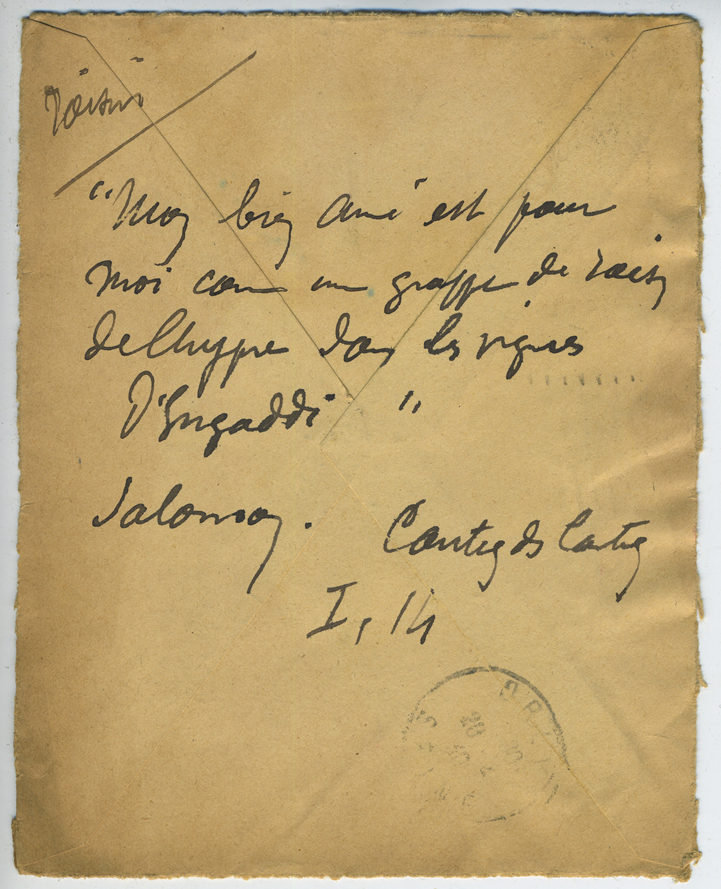 raisin
"Mon bien aimé est pour
moi com une grappe de raisin
de Chypre dans les vignes
D'Engaddi "
Salomon.
Cantiq ds Cantiq
I, 14